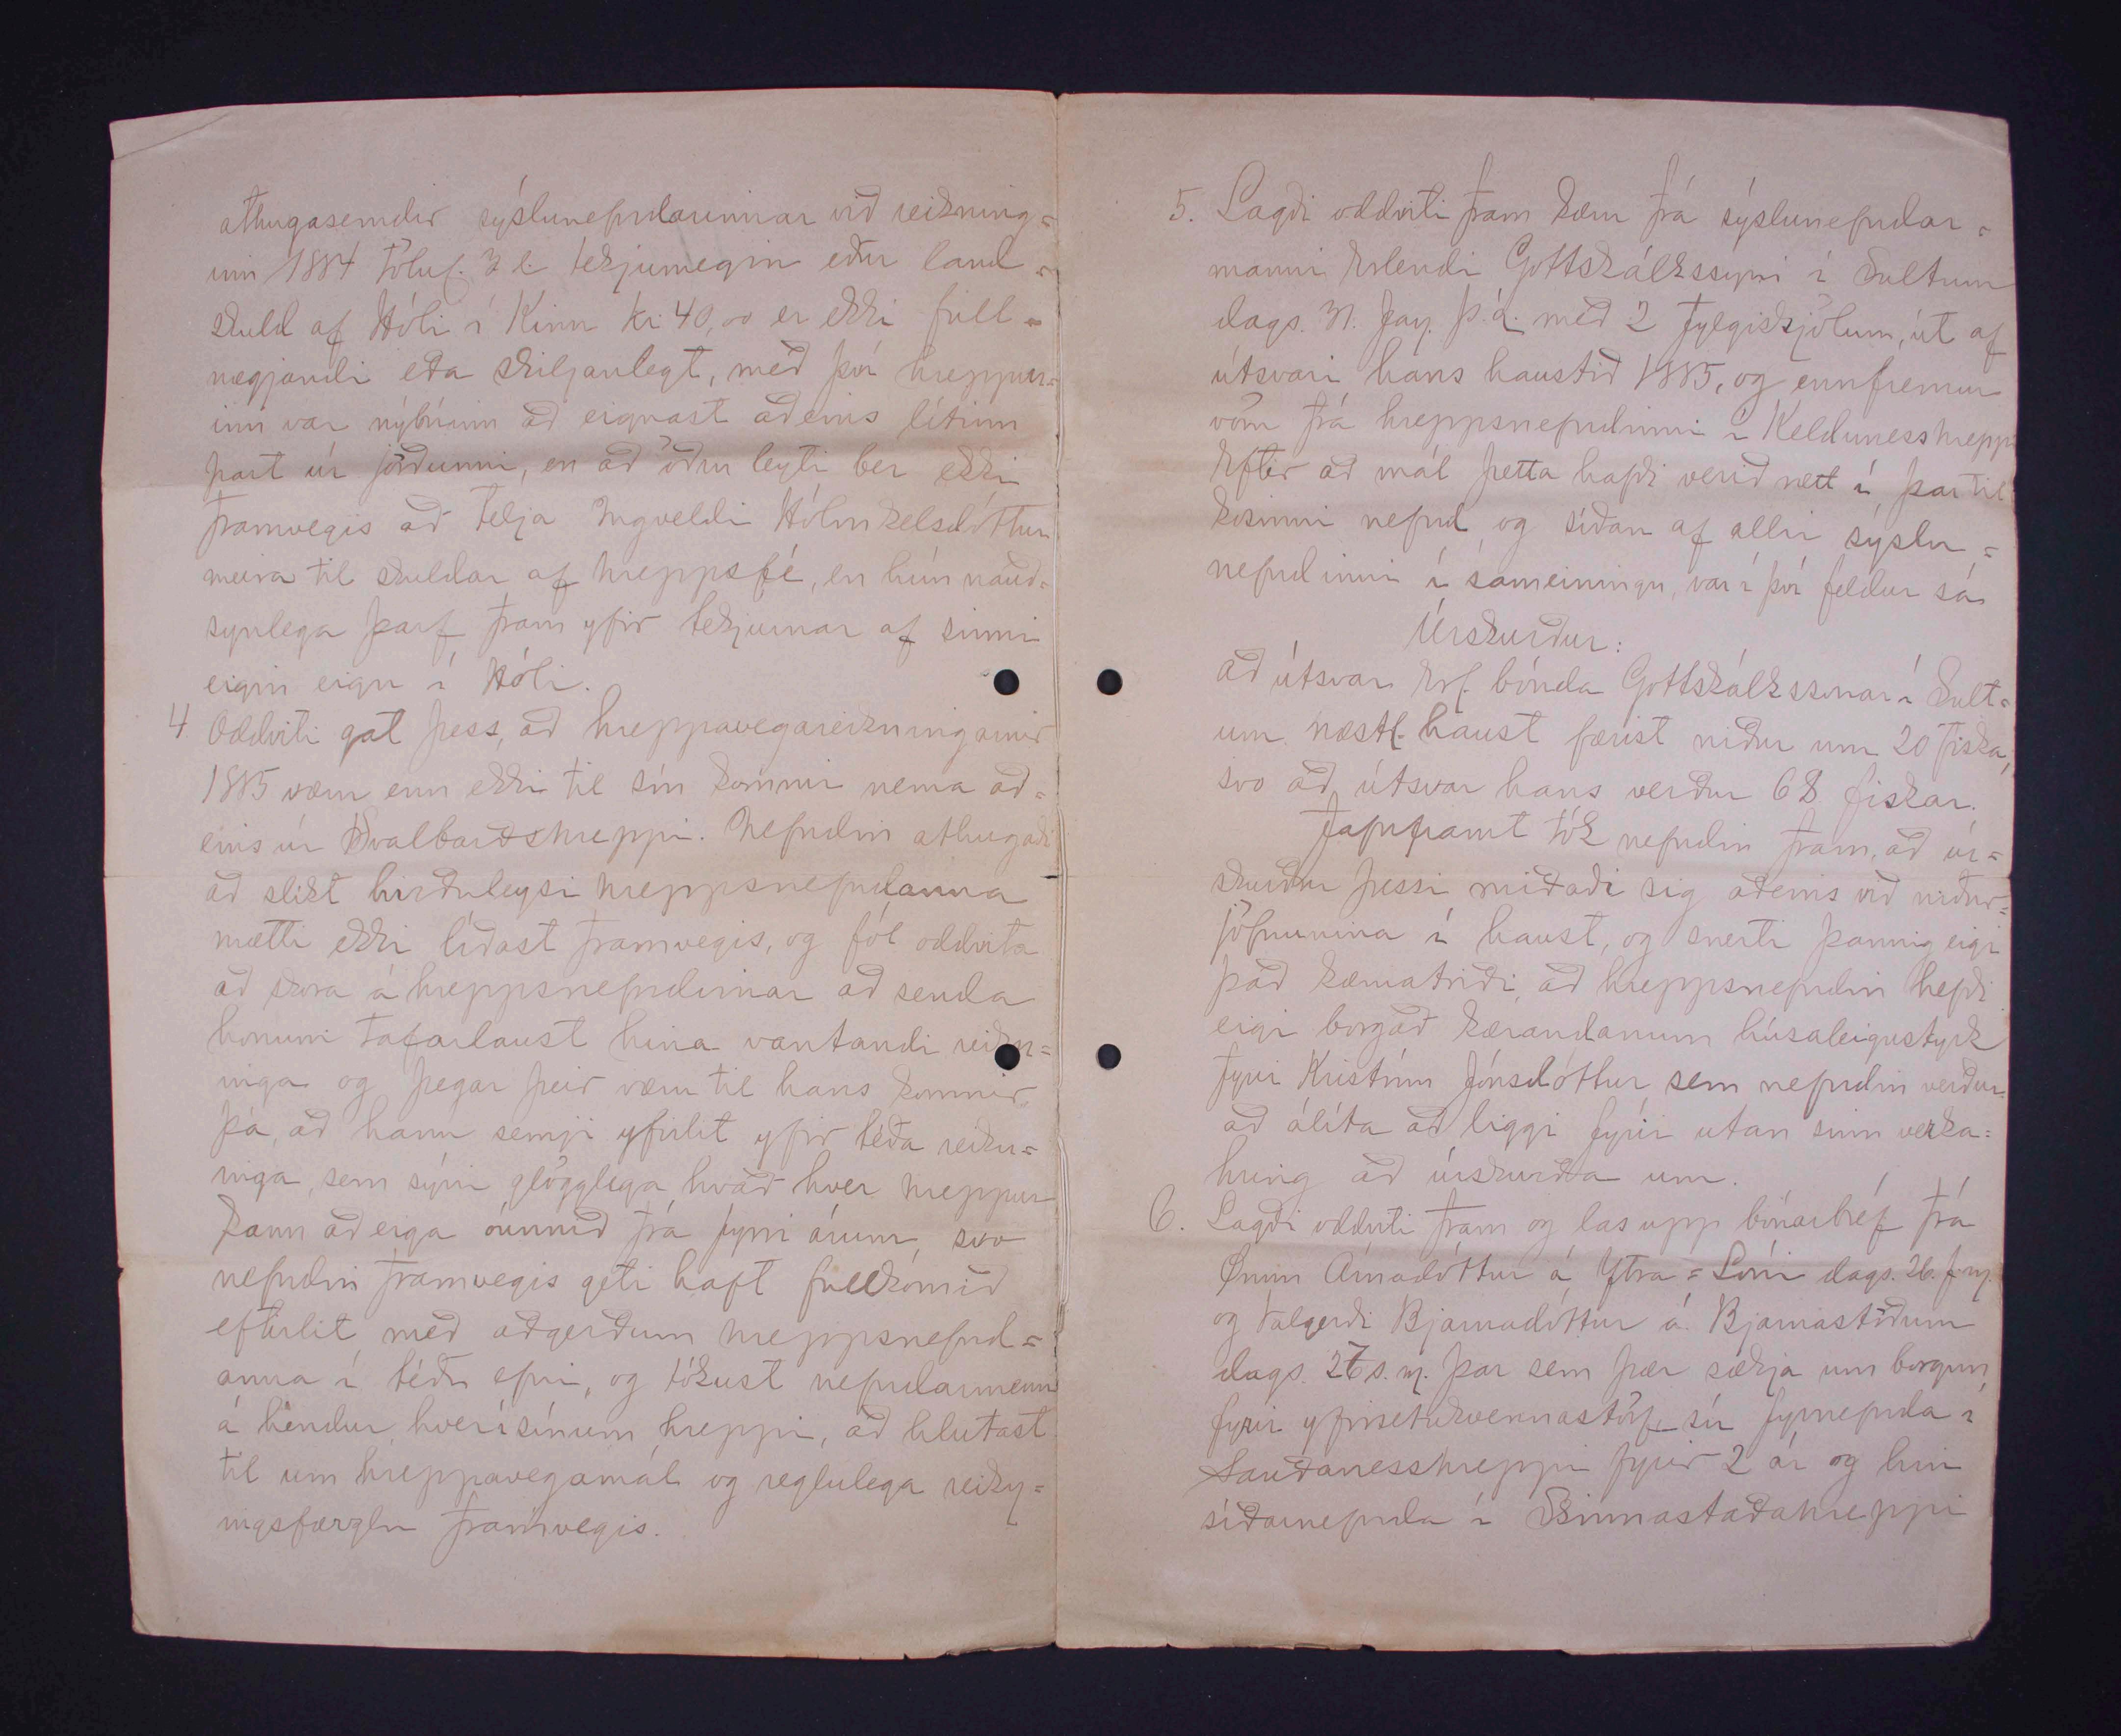 athugasemdir sýslunefndarinnar við reikning=
inn 1884 töluf. 3 l. tekjumegin eður land=
skuld af Hóli í Kinn kr 40,00 er ekki full=
nægjandi eða skiljanlegt, með því hreppur=
inn var nýbúinn að eignast aðeins lítinn
part úr jörðunni, en að öðru leyti ber ekki
framvegis að telja Ingveldi Hólmkelsdóttur
meira til skuldar af hreppsfé, en hún nauð=
synlega þarf fram yfir tekjurnar af sinni
eigin eign í Hóli.
4 Oddviti gat þess, að hreppavegareikningarnir
1885 væru enn ekki til sín komnir nema að=
eins úr Svalbarðshreppi. Nefndin athugaði
að slíkt hirðuleysi hreppsnefndanna
mætti ekki líðast framvegis, og fól oddvita
að skora á hreppsnefndirnar að senda
honum tafarlaust hina vantandi reikn=
inga og þegar þeir væru til hans komnir
þá, að hann semji yfirlit yfir téða reikn=
inga, sem sýni glögglega hvað hver hreppur
kann að eiga óunnið frá fyrri árum, svo
nefndin framvegis geti haft fullkomið
eftirlit með aðgerðum hreppsnefnd=
anna í téðu efni, og tókust nefndarmenn
á hendur, hver í sínum hreppi, að hlutast
til um hreppavegamál og reglulega reikn=
ingsfærzlu framvegis.
5. Lagði oddviti fram kæru frá sýslunefndar=
manni Erlendi Gottskálkssyni í Sultum
dags. 31. Jan. þ.á. með 2 fylgiskjölum, út af
útsvari hans haustið 1885, og ennfremur
vörn frá hreppsnefndinni í Kelduneshrepp
Eftir að mál þetta hafði verið rætt í, þar til
kosinni nefnd, og síðan af allri sýslu=
nefndinni í sameiningu, var í því feldur sá
Úrskurður:
að útsvar Erl. bónda Gottskálkssonar í Sult=
um næstl. haust færist niður um 20 fiska,
svo að útsvar hans verður 68 fiskar.
Jafnframt tók nefndin fram, að úr=
skurður þessi miðaði sig aðeins við niður=
jöfnunina í haust, og snerti þannig eigi
það kæruatriði, að hreppsnefndin hefði
eigi borgað kærandanum húsaleigustyrk
fyrir Kristínu Jónsdóttur, sem nefndin verður
að álíta að liggi fyrir utan sinn verka=
hring að úrskurða um.
6. Lagði oddviti fram og las upp bónarbréf frá
Önnu Árnadóttur á Ytra=Lóni dags. 26. f.m.
og Valgerði Bjarnadóttur á Bjarnastöðum
dags. 27 s.m. þar sem þær sækja um borgun
fyrir yfirsetukvennastörf, sú fyrnefnda í
Sauðaneshreppi fyrir 2 ár og hin
síðarnefnda í Skinnastaðahreppi